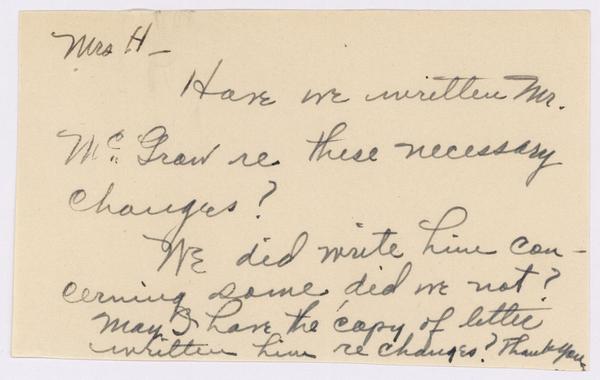 Mrs H-
Have we written Mr.
McGraw re these necessary
changes?
We did write him con-
cerning some did we not?
May I have the copy of letter
written him re changes? Thank you-